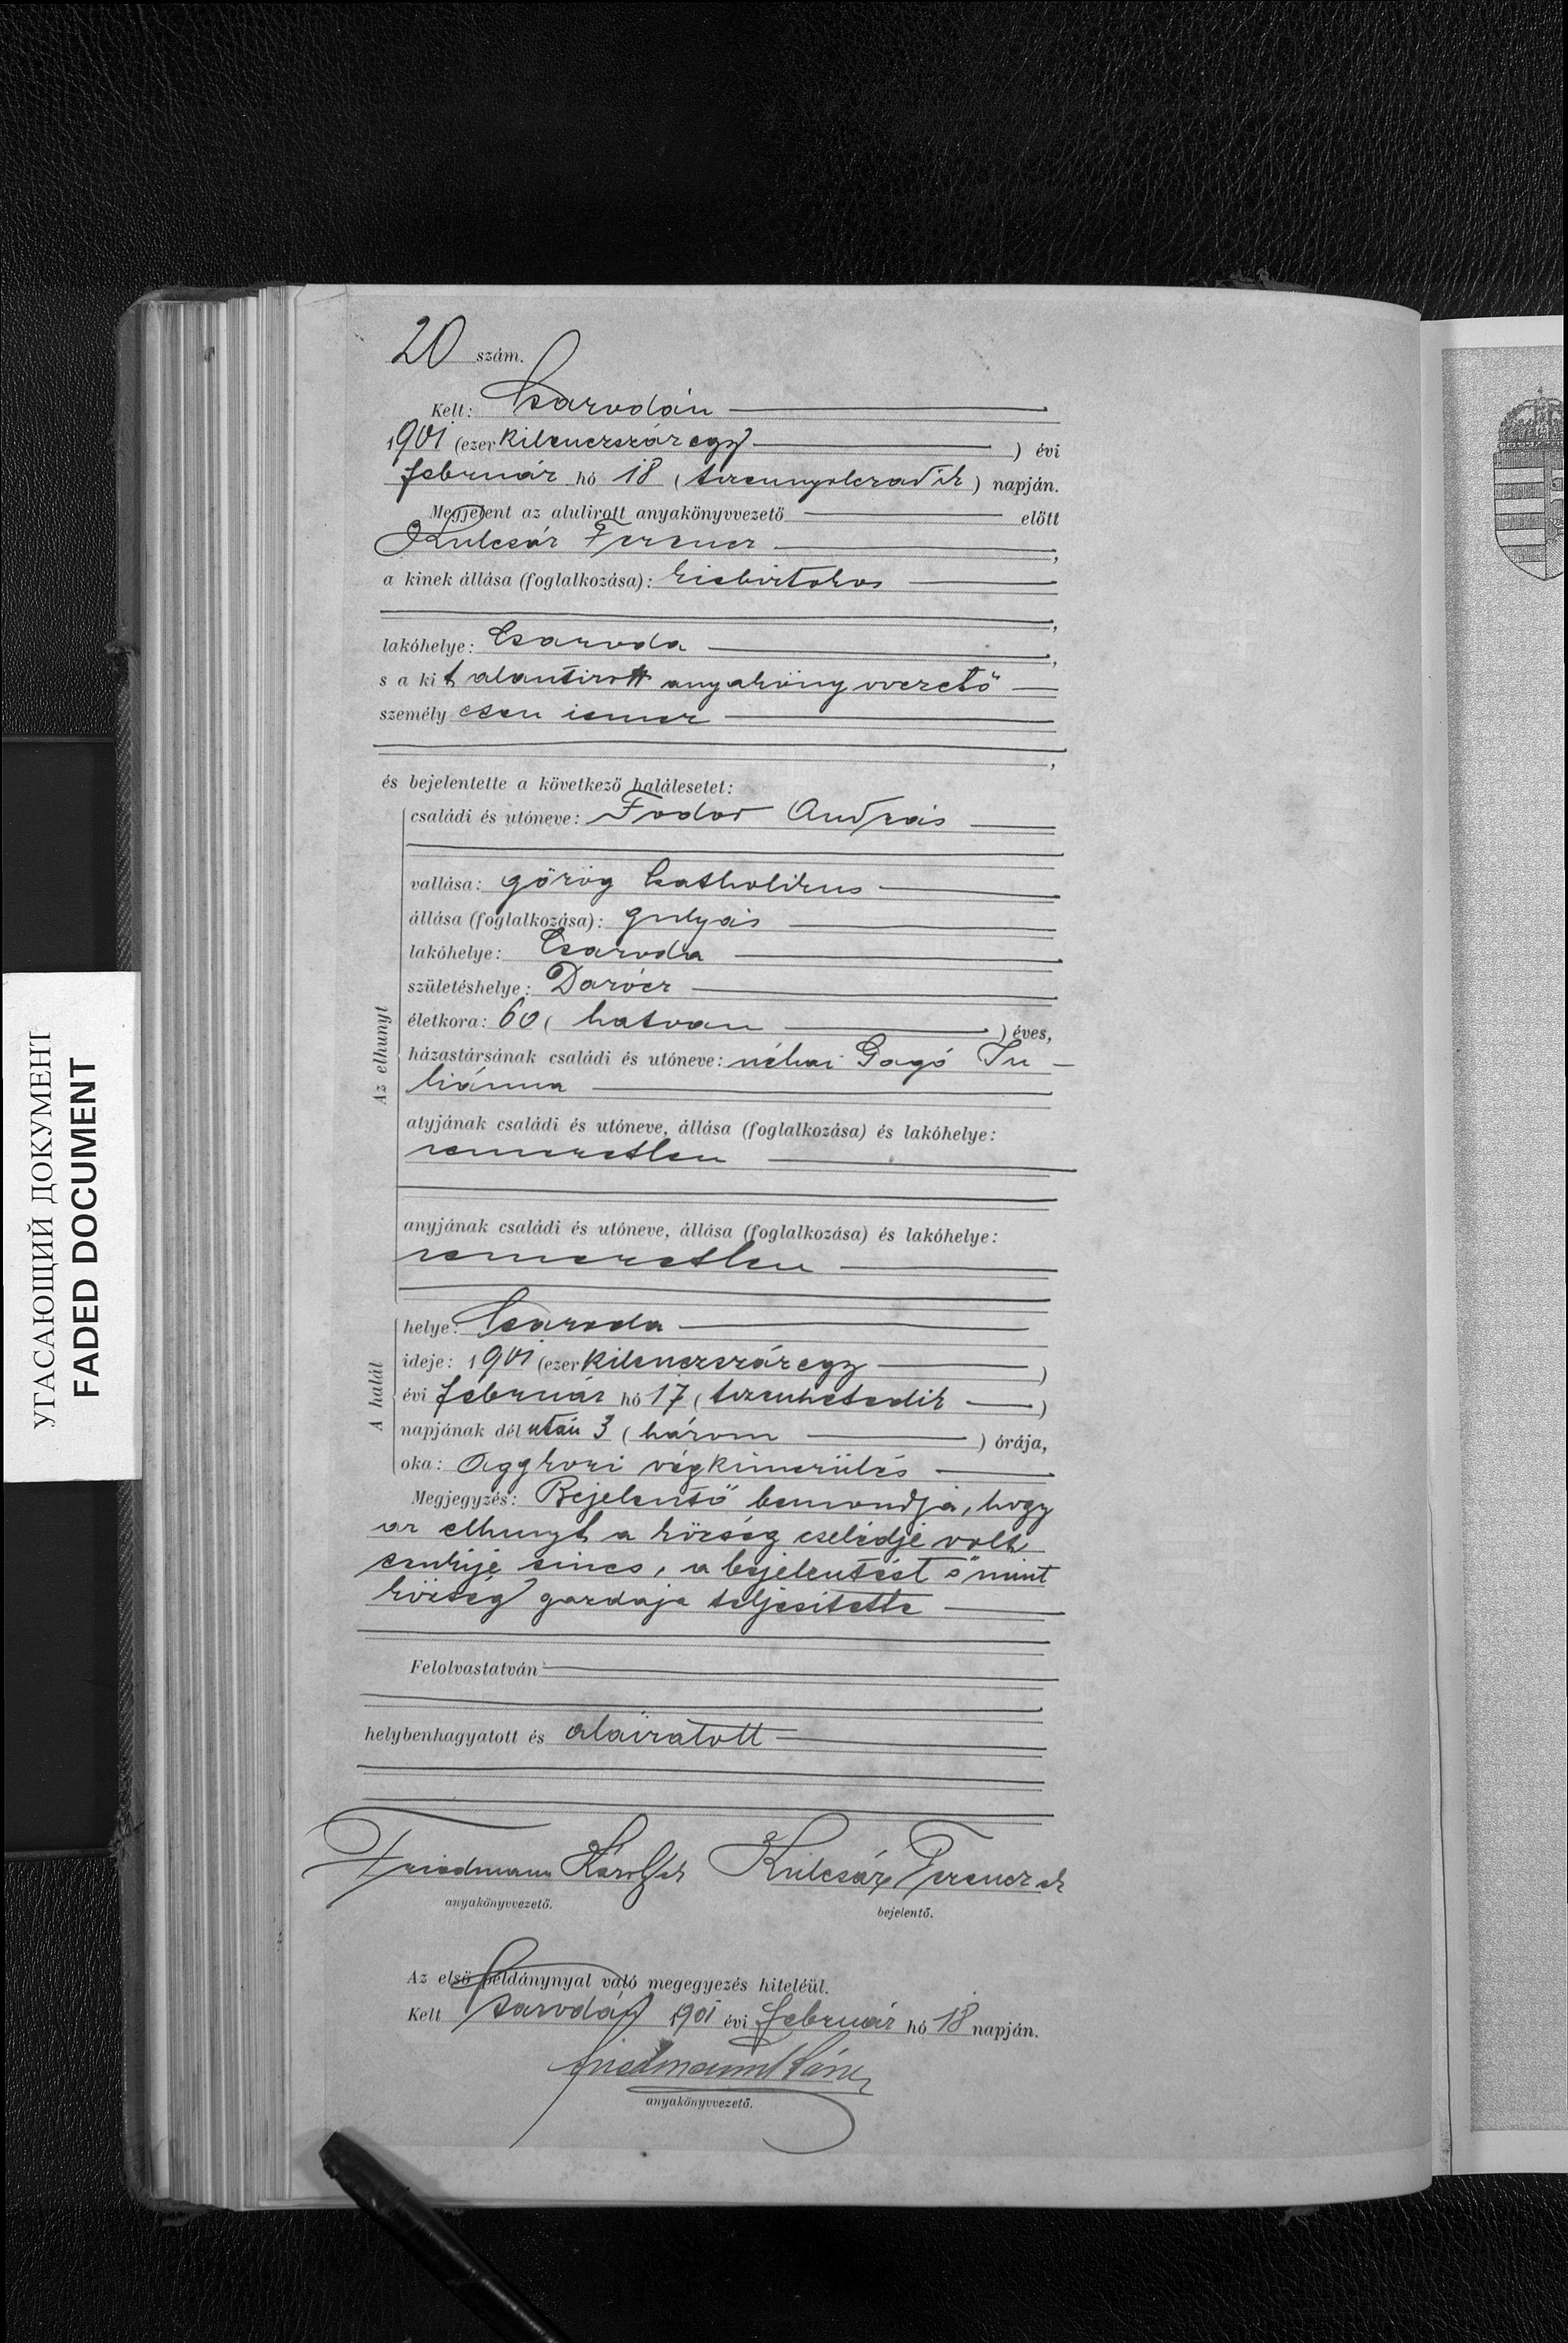 20 szám.
Kelt: Csarodán
1901 (ezer kilenczszáz egy) évi
február hó 18 (tizennyolczadik) napján.
Megjelent az alulirott anyakönyvvezető előtt
Kulcsár Ferencz,
a kinek állása (foglalkozása): kisbirtokos
,
lakóhelye: Csaroda,
s a kit alantirott anyakönyvvezető
személyesen ismer
,
és bejelentette a következő halálesetet:
Az elhunyt
családi és utóneve: Fodor András
vallása: görög katholikus
állása (foglalkozása): gulyás
lakóhelye: Csaroda
születéshelye: Darócz
életkora: 60 (hatvan) éves,
házastársának családi és utóneve: néhai Gagó Ju-
liánna
atyjának családi és utóneve, állása (foglalkozása) és lakóhelye:
ismeretlen
anyjának családi és utóneve, állása (foglalkozása) és lakóhelye:
ismeretlen
A halál
helye: Csaroda
ideje: 1901 (ezer kilenczszáz egy)
évi február hó 17 (tizenhetedik)
napjának dél után 3 (három) órája,
oka: Aggkori végkimerülés
Megjegyzés: Bejelentő bemondja, hogy
az elhunyt a község cselédje volt
senkije sincs, a bejelentést ő mint
község gazdája teljesitette
Felolvastatván
helybenhagyatott és aláiratott
Friedmann Károly sk Kulcsár Ferencz sk
anyakönyvvezető. bejelentő.
Az első példánynyal való megegyezés hiteléül.
Kelt Csarodán 1901 évi február hó 18 napján.
Friedmann Károly
anyakönyvvezető.
УГАСАЮЩИЙ ДОКУМЕНТ
FADED DOCUMENT